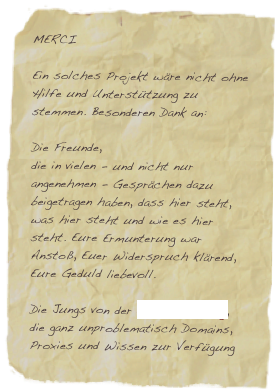 MERCI
Ein solches Projekt wäre nicht ohne
Hilfe und Unterstützung zu
stemmen. Besonderen Dank an:
Die Freunde,
die in vielen - und nicht nur
angenehmen - Gesprächen dazu
beigetragen haben, dass hier steht,
was hier steht und wie es hier
steht. Eure Ermunterung war
Anstoß, Euer Widerspruch klärend,
Eure Geduld liebevoll.
Die Jungs von der
die ganz unproblematisch Domains,
Proxies und Wissen zur Verfügung